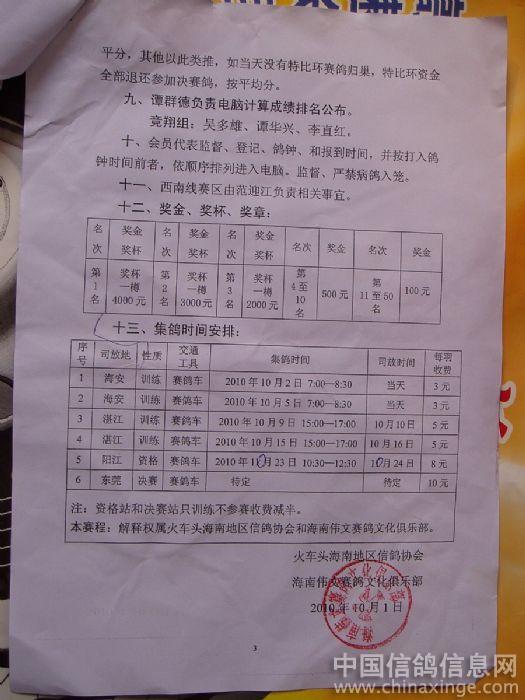 平分，其他以此类推，如当天没有特比环赛鸽归巢，特比环资金
全部退还参加决赛鸽，按平均分。
九、潭群德负责电脑计算成绩排名公布。
竞翔组：吴多雄、谭华兴、李直红。
十、会员代表监督、登记、鸽钟、和报到时间，并按打入鸽
钟时间前者，依顺序排列进入电脑。监督、严禁病鸽入笼。
十一、西南线赛区由范迎江负责相关事宜。
十二、奖金、奖杯、奖章：
名次 奖金奖杯 名次 奖金奖杯 名次 奖金奖杯 名次 奖金 名次 奖金
第1名 奖杯一樽4000元 第2名 奖杯一樽3000元 第3名 奖杯一樽2000元 第4至10名 500元 第11至50名 100元
十三、集鸽时间安排：
序号 司放地 性质 交通工具 集鸽时间 司放时间 每羽收费
1 海安 训练 赛鸽车 2010年10月2日 7:00—8:30 当天 3元
2 海安 训练 赛鸽车 2010年10月5日 7:00—8:30 当天 3元
3 湛江 训练 赛鸽车 2010年10月9日 15:00—17:00 10月10日 5元
4 湛江 训练 赛鸽车 2010年10月15日 15:00—17:00 10月16日 5元
5 阳江 资格 赛鸽车 2010年10月23日 10:30—12:30 10月24日 8元
6 东莞 决赛 赛鸽车 待定 待定 10元
注：资格站和决赛站只训练不参赛收费减半。
本赛程：解释权属火车头海南地区信鸽协会和海南伟文赛鸽文化俱乐部。
火车头海南地区信鸽协会
海南伟文赛鸽文化俱乐部
2010年10月1日
3
中国信鸽信息网
www.chinaxinge.com